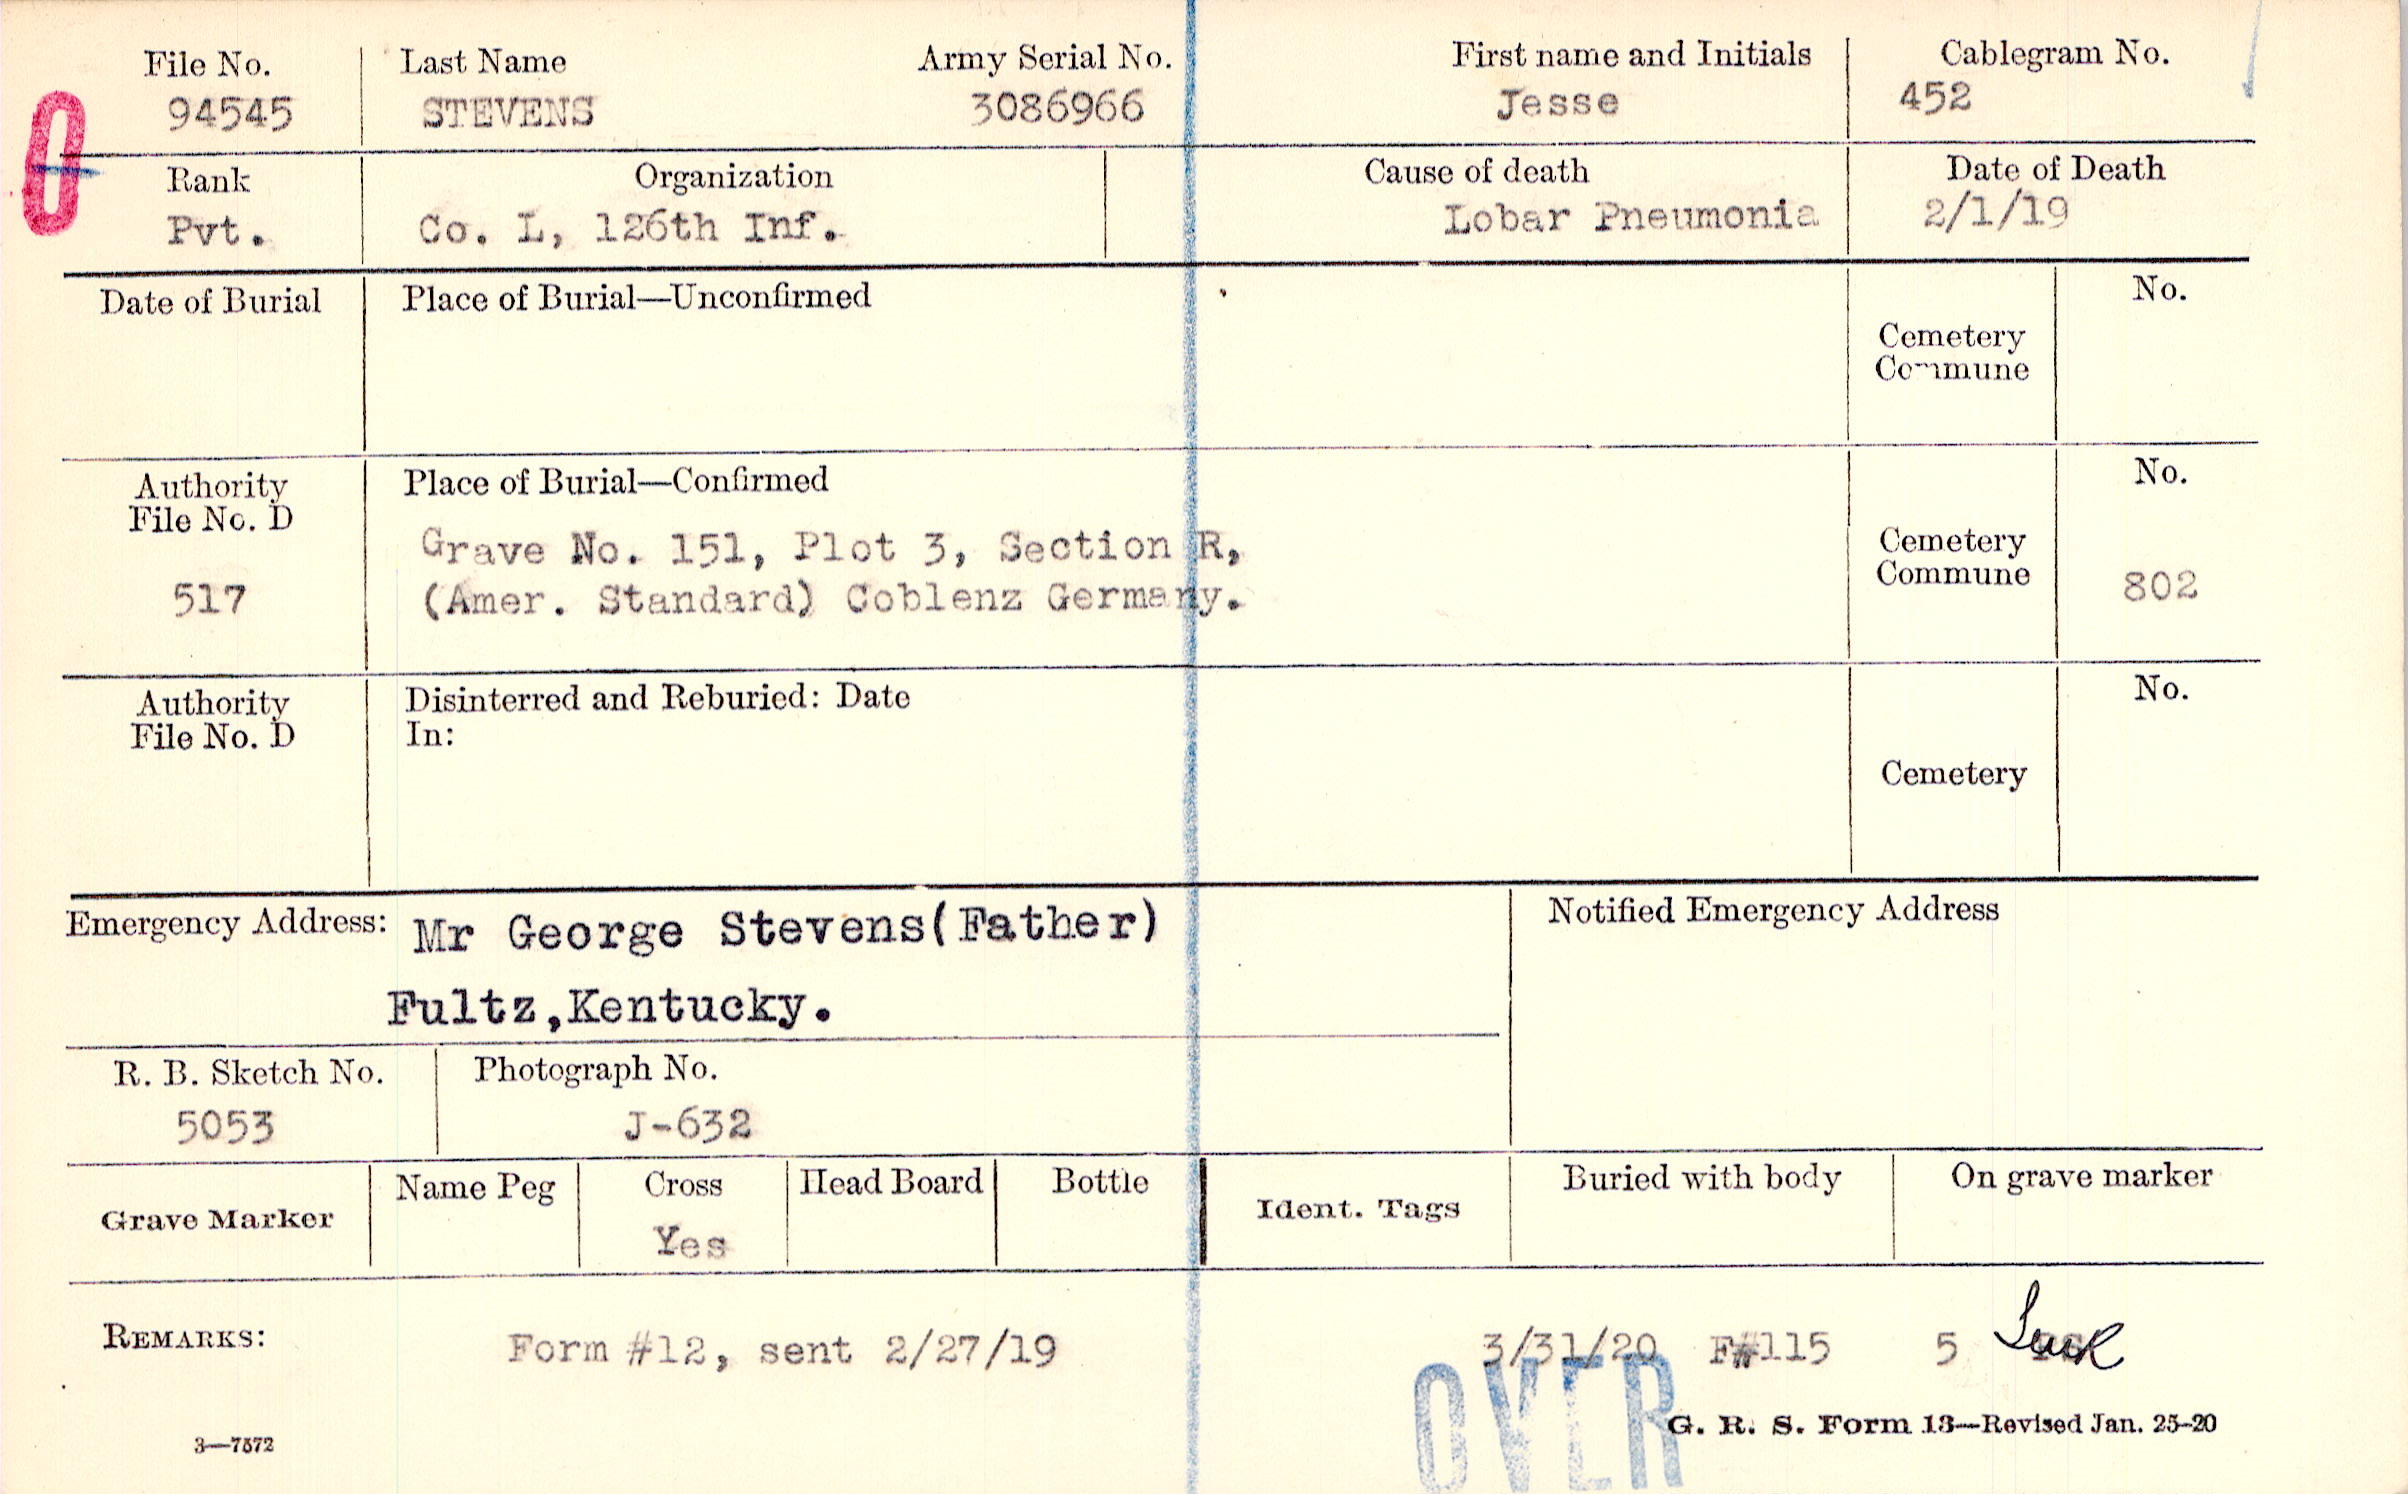 File No. Last Name Army Serial No. First name and Initials Cablegram No.
94545 STEVENS 3086966 Jesse 452
0
Rank Organization Cause of death Date of Death
Pvt. Co. L, 126th Inf. Lobar Pneumonia 2/1/19
Date of Burial Place of Burial—Unconfirmed No.
Cemetery
Commune
Authority Place of Burial—Confirmed No.
File No. D
Grave No. 151, Plot 3, Section R, Cemetery
517 (Amer. Standard) Coblenz Germany. Commune 802
Authority Disinterred and Reburied: Date No.
File No. D In:
Cemetery
Emergency Address: Mr George Stevens(Father) Notified Emergency Address
Fultz,Kentucky.
R. B. Sketch No. Photograph No.
5053 J-632
Grave Marker Name Peg Cross Head Board Bottle Ident. Tags Buried with body On grave marker
Yes
REMARKS: Form #12, sent 2/27/19 3/31/20 F#115 5
OVER
3—7572 G. R. S. Form 13—Revised Jan. 25-20